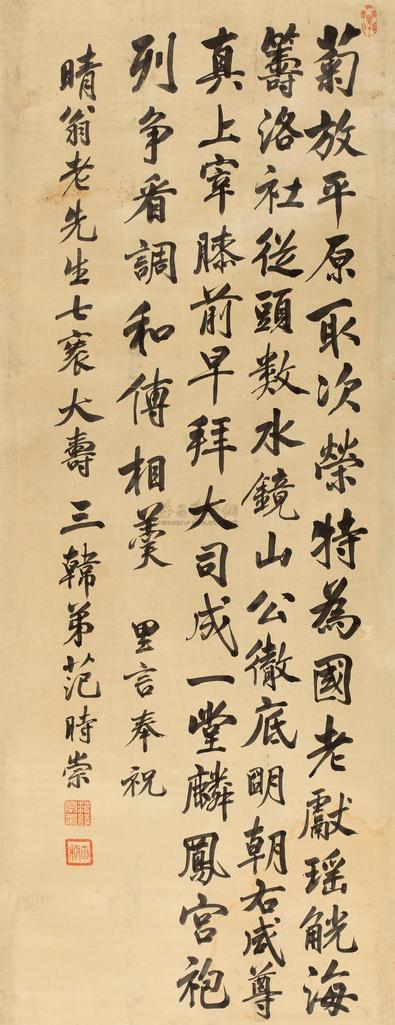 菊放平原取次榮特為國老獻瑤觥海
籌洛社從頭数水鏡山公徹底明朝右咸尊
真上宰膝前早拜大司成一堂麟鳳宮袍
列争看調和傅相羮 里言奉祝
晴翁老先生七袠大壽 三韓弟范時崇